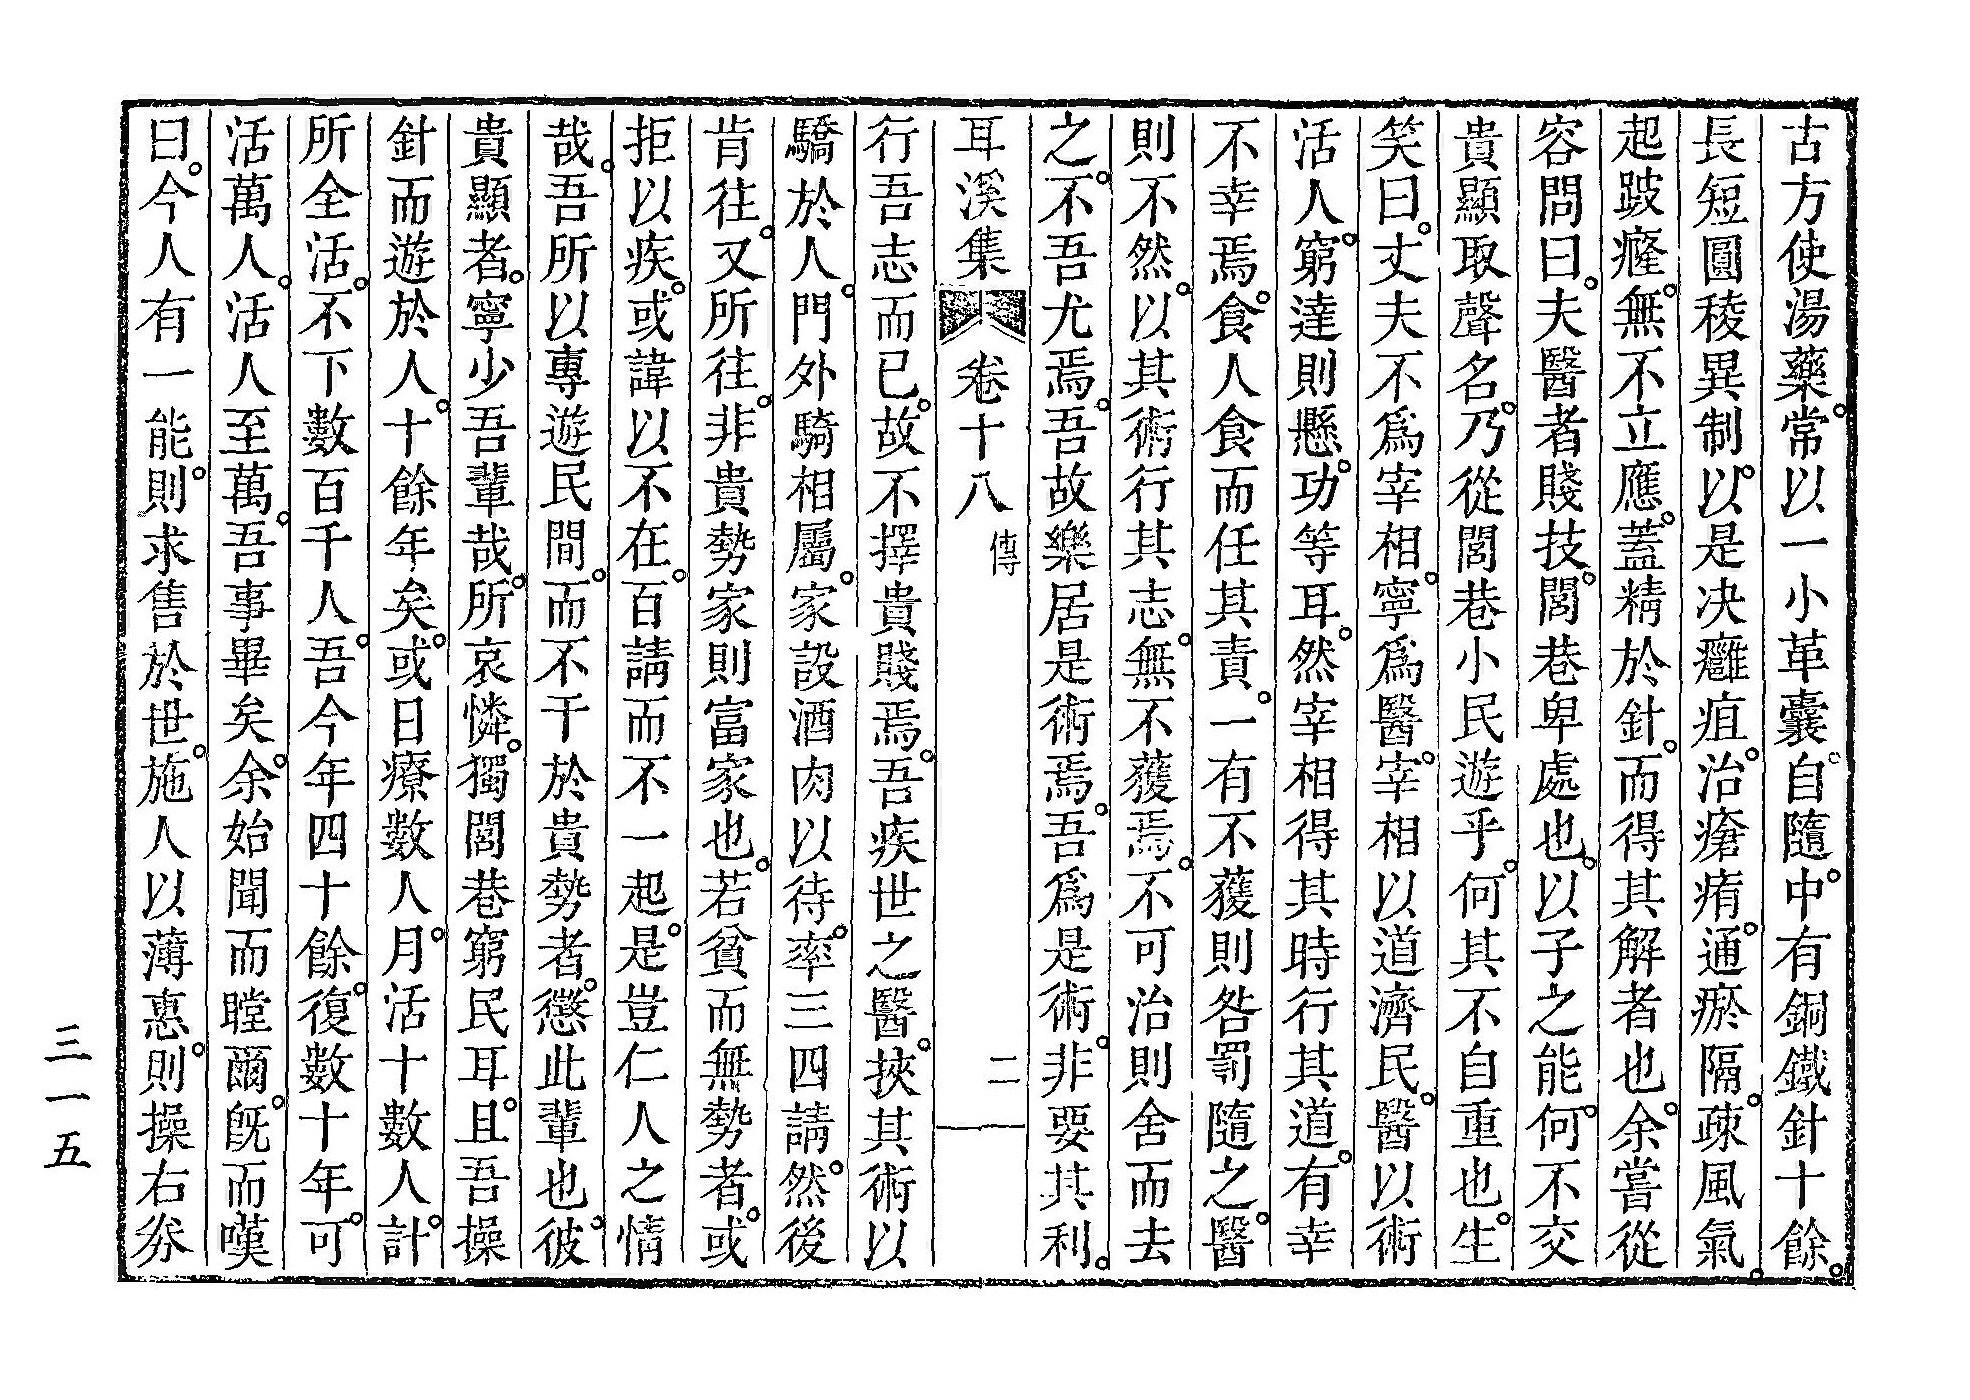 古方使湯藥。常以一小革囊。自隨。中有銅鐵針十餘。
長短圓稜異制。以是决癰疽。治瘡痏。通瘀隔。疎風氣。
起跛癃。無不立應。蓋精於針。而得其解者也。余嘗從
容問曰。夫醫者賤技。閭巷卑處也。以子之能。何不交
貴顯取聲名。乃從閭巷小民遊乎。何其不自重也。生
笑曰。丈夫不爲宰相。寧爲醫。宰相以道濟民。醫以術
活人。窮達則懸。功等耳。然宰相得其時行其道。有幸
不幸焉。食人食而任其責。一有不獲則咎罰隨之。醫
則不然。以其術行其志。無不獲焉。不可治則舍而去
之。不吾尤焉。吾故樂居是術焉。吾爲是術。非要其利。
耳溪集 卷十八 傳 二
行吾志而已。故不擇貴賤焉。吾疾世之醫。挾其術以
驕於人。門外騎相屬。家設酒肉以待。率三四請。然後
肯往。又所往。非貴勢家則富家也。若貧而無勢者。或
拒以疾。或諱以不在。百請而不一起。是豈仁人之情
哉。吾所以專遊民間。而不干於貴勢者。懲此輩也。彼
貴顯者。寧少吾輩哉。所哀憐。獨閭巷窮民耳。且吾操
針而遊於人。十餘年矣。或日療數人。月活十數人。計
所全活。不下數百千人。吾今年四十餘。復數十年。可
活萬人。活人至萬。吾事畢矣。余始聞而瞠爾。旣而嘆
曰。今人有一能。則求售於世。施人以薄惠。則操右券
三一五